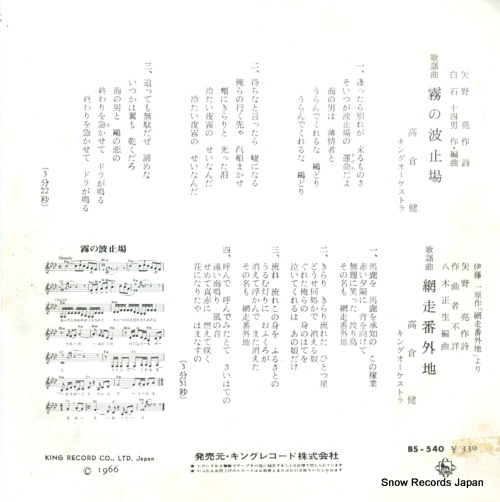 矢野 亮 作詩
白石十四男 作・編曲
歌謡曲 霧の波止場
高倉 健
キングオーケストラ
一、逢ったら別れが 来るものさ
そいつが波止場の 運命だよ
海の男は 薄情者と
うらんでくれるな 鷗どり
うらんでくれるな 鷗どり
二、待ちなと言ったら 嘘になる
俺らの行く先ゃ 汽船まかせ
頰にきらりと 光った泪
冷たい夜霧の せいなんだ
冷たい夜霧の せいなんだ
三、追っても無駄だぜ 諦めな
いつかは翼も 乾くだろ
海の男と 鷗の恋の
終わりを急かせて ドラが鳴る
終わりを急かせて ドラが鳴る
(3分22秒)
伊藤 一原作「網走番外地」より
矢野 亮 作詩
作曲者不詳
八木正生 編曲
歌謡曲 網走番外地
高倉 健
キングオーケストラ
一、馬鹿を 馬鹿を承知の この稼業
赤い夕陽に 背を向けて
無理に笑った 渡り鳥
その名も 網走番外地
二、きらり きらり流れた ひとつ星
どうせ何処かで 消える奴
ぐれた俺らの 身のはてを
泣いてくれるは あの娘だけ
三、流れ 流れこの身を ふるさとの
うるむ灯りに おふくろが
消えて浮かんで また消えた
その名も 網走番外地
四、呼んで 呼んでみたとて さいはての
遠い海鳴り 風の音
せめて真赤に 燃えて咲く
花になりたや はまなすの
(3分31秒)
霧の波止場
Slowly
KING RECORD CO., LTD. Japan
© 1966
発売元・キングレコード株式会社
BS-540 ¥330
Snow Records Japan